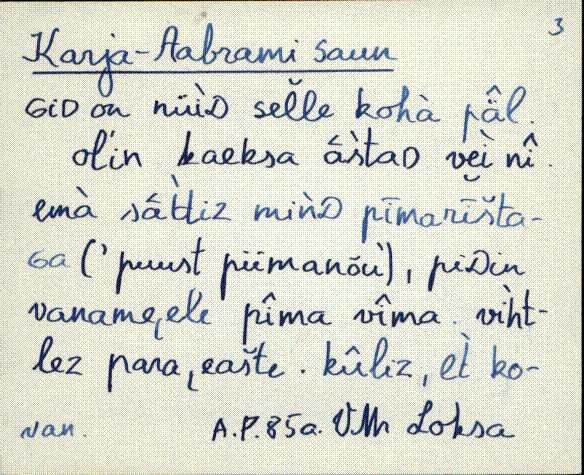 3
Karja-Aabrami saun
GiD on nüìD sel̆le kohà pä̂l.
ol'in kaeksa áàstaD vèi nî.
emà sáttiz mìnD pīmarīšta-
Ga ('puust piimanõu), piDin
vanamęele pîma vîma. vìht-
lez para,easte. kûliz, èt ko-
van. A.P. 85a. VMr Loksa